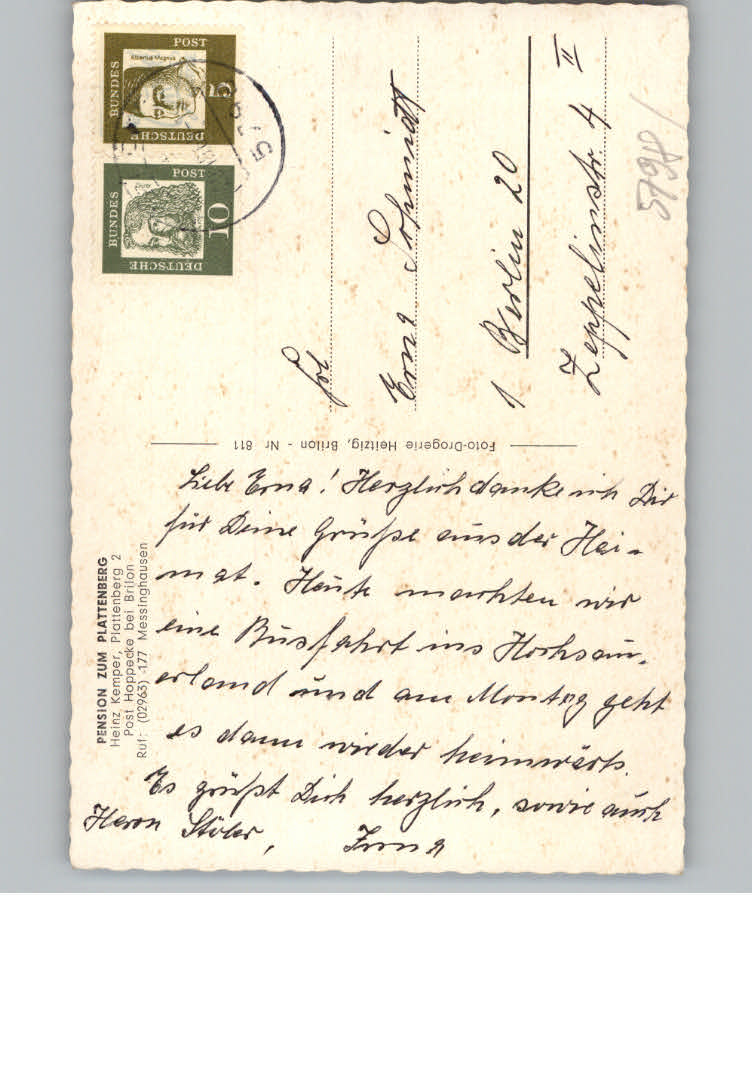 PENSION ZUM PLATTENBERG
Heinz Kemper, Plattenberg 2
Post Hoppecke bei Brilon
Ruf: (02963) -177 Messinghausen
Liebe Erna! Herzlich danke ich Dir
für Deine Grüße aus der Hei-
mat. Heute machten wir
eine Busfahrt ins Hochsau-
erland und am Montag geht
es dann wieder heimwärts.
Es grüßt Dich herzlich, sowie auch
Herrn Stöler, Irma
Foto-Drogerie Heitzig, Brilon - Nr 811
Frl
Erna Schmidt
1 Berlin 20
Zeppelinstr. 4 II
DEUTSCHE
BUNDES
POST
Albertus Magnus
5
DEUTSCHE
BUNDES
POST
10